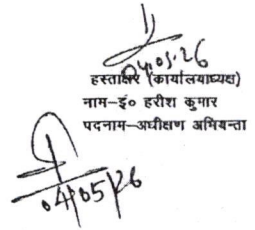 04.05.26
हस्ताक्षर (कार्यालयाध्यक्ष)
नाम–इं० हरीश कुमार
पदनाम–अधीक्षण अभियन्ता
04/05/26